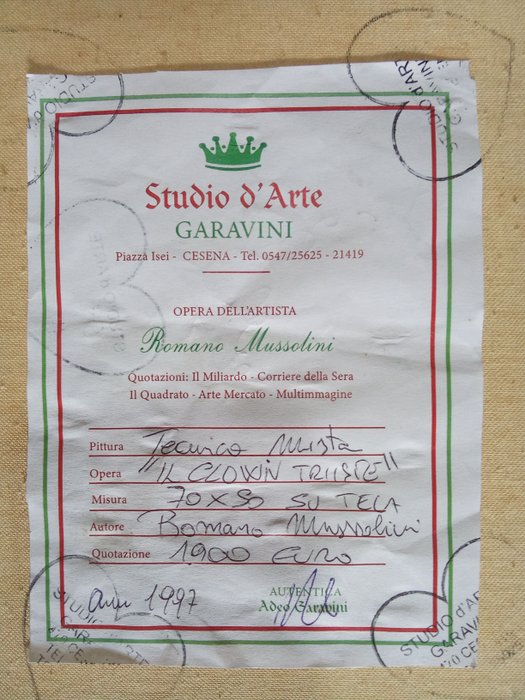 Studio d'Arte
GARAVINI
Piazza Isei - CESENA - Tel. 0547/25625 - 21419
OPERA DELL'ARTISTA
Romano Mussolini
Quotazioni: Il Miliardo - Corriere della Sera
Il Quadrato - Arte Mercato - Multimmagine
Pittura Tecnica Mista
Opera "IL CLOWN TRISTE"
Misura 70x50 SU TELA
Autore Romano Mussolini
Quotazione 1.900 EURO
Anno 1997
AUTENTICA
Adeo Garavini
STUDIO d'AR
GARAVINI
470 CE